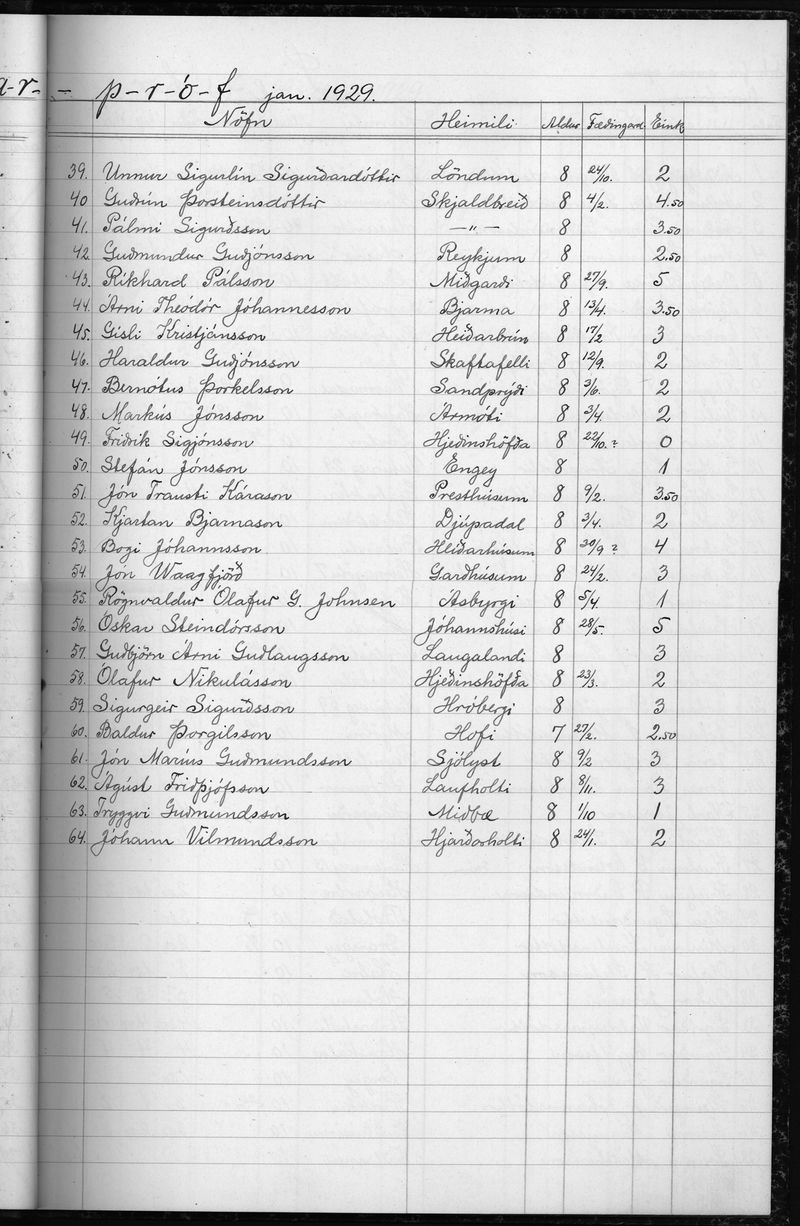 a-r- - p-r-ó-f jan. 1929.
Nöfn Heimili Aldur Fæðingard. Eink
39. Unnur Sigurlín Sigurðardóttir Löndum 8 24/10. 2
40 Guðrún Þorsteinsdóttir Skjaldbreið 8 4/2. 4.50
41. Pálmi Sigurðsson —"— 8 3.50
42 Guðmundur Guðjónsson Reykjum 8 2.50
43. Ríkhard Pálsson Miðgarði 8 27/9. 5
44. Árni Theódór Jóhannesson Bjarma 8 13/4. 3.50
45. Gísli Kristjánsson Heiðarbrún 8 17/2 3
46. Haraldur Guðjónsson Skaftafelli 8 12/9. 2
47. Bernótus Þorkelsson Sandprýði 8 3/6. 2
48. Markús Jónsson Ármóti 8 3/4. 2
49. Friðrik Sigjónsson Hjeðinshöfða 8 22/10. ? 0
50. Stefán Jónsson Engey 8 1
51. Jón Trausti Kárason Presthúsum 8 9/2. 3.50
52. Kjartan Bjarnason Djúpadal 8 3/4. 2
53. Bogi Jóhannsson Heiðarhúsum 8 30/9 ? 4
54. Jón Waagfjörð Garðhúsum 8 24/2. 3
55. Rögnvaldur Ólafur G. Johnsen Ásbyrgi 8 5/4. 1
56. Óskar Steindórsson Jóhannshúsi 8 28/5. 5
57. Guðbjörn Árni Guðlaugsson Laugalandi 8 3
58. Ólafur Nikulásson Hjeðinshöfða 8 23/3. 2
59. Sigurgeir Sigurðsson Hróbergi 8 3
60. Baldur Þorgilsson Hofi 7 27/2. 2.50
61. Jón Maríus Guðmundsson Sjólyst 8 9/2 3
62. Ágúst Friðþjófsson Laufholti 8 8/11. 3
63. Tryggvi Guðmundsson Miðbæ 8 1/10 1
64. Jóhann Vilmundsson Hjarðarholti 8 24/1. 2